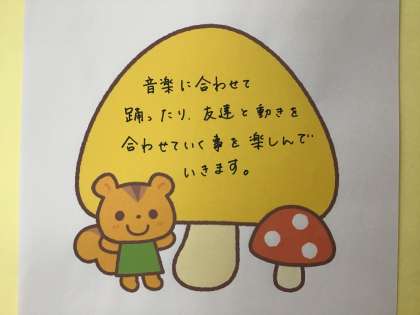 音楽に合わせて
踊ったり、友達と動きを
合わせていく事を楽しんで
いきます。